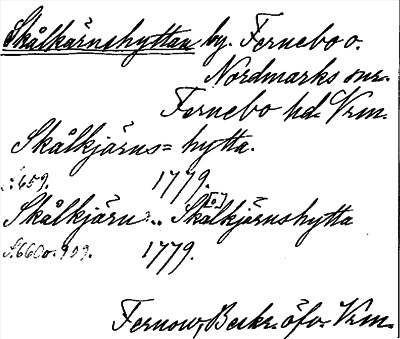 Skålkärnshyttan by. Fernebo o.
Nordmarks snr.
Fernebo hd. Vrm.
Skålkjärns=hytta.
s. 659. 1779.
Skålkjärn... Skålkjärnshytta [o]
S. 660. 1779.
Fernow, Beskr. öfv. Vrm.